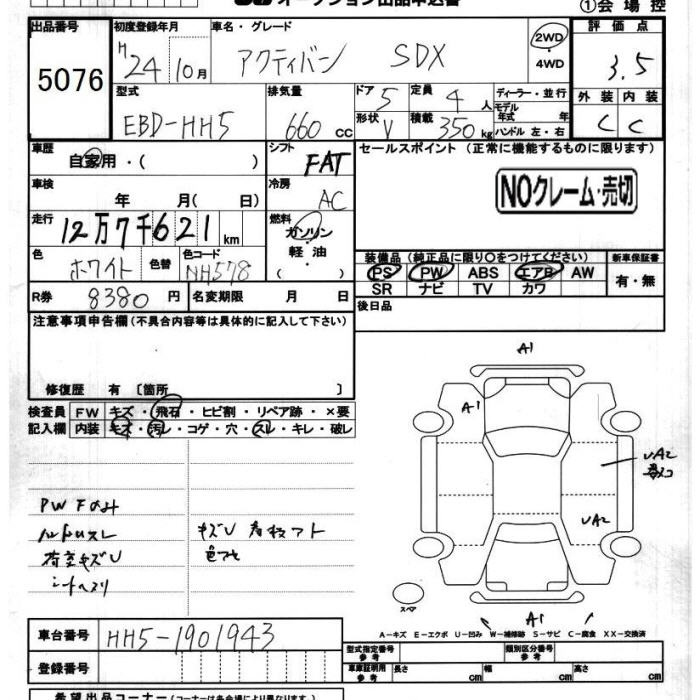 ①会場控
出品番号 初度登録年月 車名・グレード 2WD 評価点
5076 H24 10月 アクティバン SDX ・4WD 3.5
型式 排気量 ドア 5 定員 4人 ディーラー・並行 外装 内装
EBD-HH5 660cc 形状 V 積載 350kg モデル年式 年 ハンドル 左・右 C C
車歴 シフト セールスポイント (正常に機能するものに限ります)
自家用・( ) FAT
車検 冷房 NOクレーム・売切
年 月( 日) AC
走行 燃料
12万7千621km ガソリン
色 色替 色コード 軽油 装備品 (純正品に限り○をつけてください) 新車保証書
ホワイト NH578 ・( ) PS PW ABS エアB AW 有・無
R券 8380円 名変期限 月 日 SR ナビ TV カワ
注意事項申告欄 (不具合内容等は具体的に記入して下さい) 後日品
修復歴 有 〔箇所 〕
検査員 FW キズ・飛石・ヒビ割・リペア跡・×要
記入欄 内装 キズ・汚レ・コゲ・穴・スレ・キレ・破レ
A1
A1
UA2
UA2
PWFのみ
ハンドルスレ キズU
荷室キズU
スペア
A1
A-キズ E-エクボ U-凹み W-補修跡 S-サビ C-腐食 XX-交換済
車台番号 HH5-1901943
型式指定番号 参考 類別区分番号 参考
登録番号 車庫証明用 参考 長さ cm 幅 cm 高さ cm
希望出品コーナー